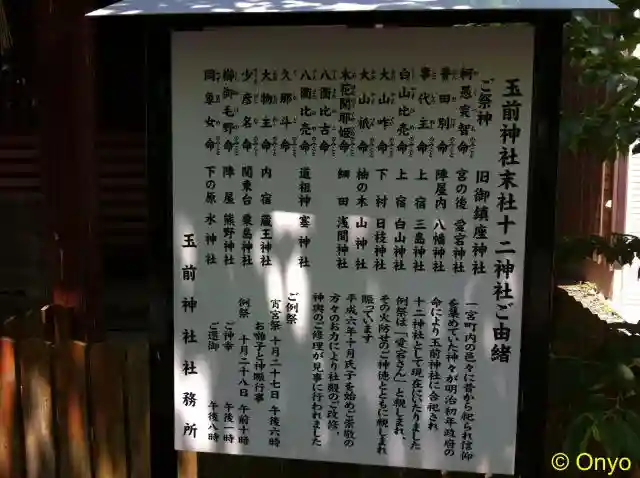 玉前神社末社十二神社ご由緒
ご祭神 旧御鎮座神社
宮の後 愛宮神社
誉田別命 陣屋内 八幡神社
事代主命 上宿 三島神社
白山比売命 上宿 白山神社
大山咋命 下村 日枝神社
大山祇命 柚の木 山神社
木花開耶姫命 細田 浅間神社
八衢比古命
八衢比売命 道祖神 塞神社
久那斗命
大物主命 内宿 蔵王神社
少彦名命 関東台 粟島神社
櫛御毛野命 陣屋 熊野神社
罔象女命 下の原 水神社
一宮町内の色々に昔から祀られ信仰
を集めていた神々が明治初年政府の
命により玉前神社に合祀され
十二神社として現在にいたりました
例祭は「愛宮さん」と親しまれ、
その火防せのご神徳とともに親しまれ
賑っています
平成六年十月氏子を始めご崇敬の
方々のお力により社殿のご改修、
神輿のご修理が見事に行われました
ご例祭
宵宮祭 十月二十七日 午後六時
お囃子と神賑行事
例祭 十月二十八日 午前十時
ご神幸 午後一時
ご還御 午後八時
玉前神社社務所
© Onyo